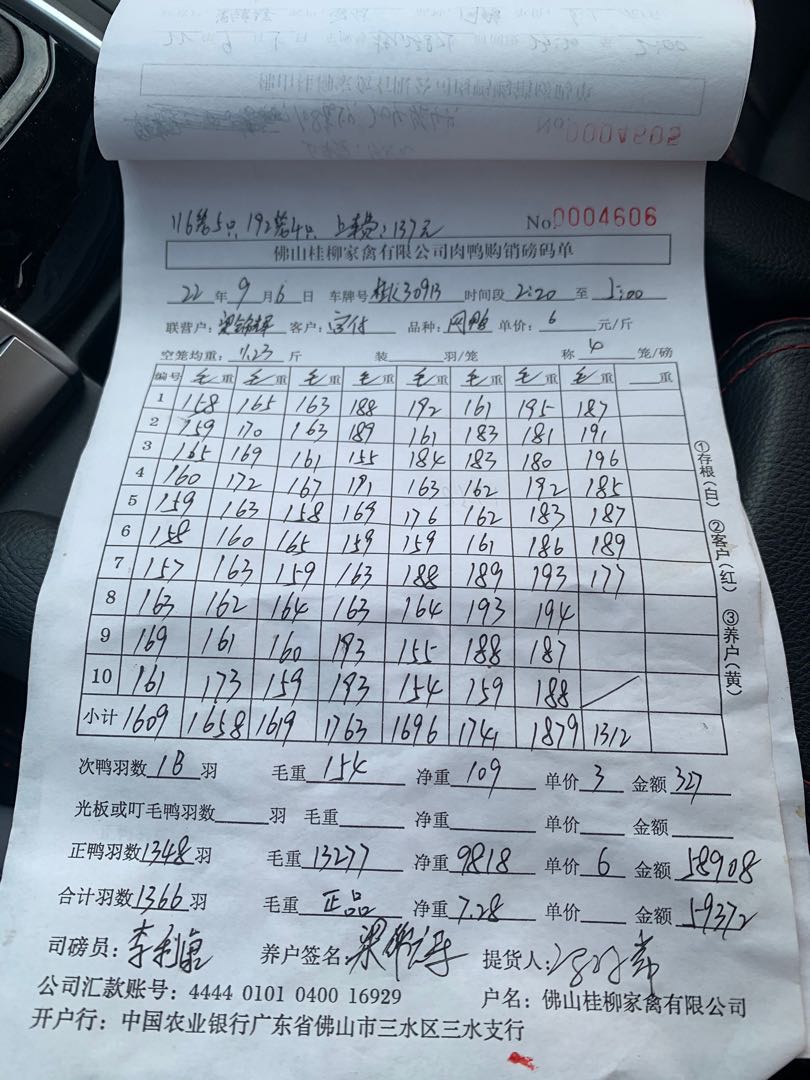 116笼5只, 192笼4只 上车费: 137元
No.0004606
佛山桂柳家禽有限公司肉鸭购销磅码单
22年9月6日 车牌号桂K3091B 时间段2:20至5:00
联营户: 客户: 品种: 网鸭 单价: 6元/斤
空笼均重: 11.23斤 装 羽/笼 称4笼/磅
编号 毛重 毛重 毛重 毛重 毛重 毛重 毛重 毛重 重
1 158 165 163 188 192 161 195 187
2 159 170 163 189 161 183 181 191
3 165 169 161 155 184 183 180 196
4 160 172 167 191 163 162 192 185
5 159 163 158 169 176 162 183 187
6 158 160 165 159 159 161 186 189
7 157 163 159 163 188 189 193 177
8 163 162 164 163 164 193 194
9 169 161 160 193 155 188 187
10 161 173 159 193 154 159 188
小计 1609 1658 1619 1763 1696 1741 1879 1312
①存根(白) ②客户(红) ③养户(黄)
次鸭羽数18羽 毛重154 净重109 单价3 金额327
光板或叮毛鸭羽数 羽 毛重 净重 单价 金额
正鸭羽数1348羽 毛重13277 净重9818 单价6 金额58908
合计羽数1366羽 毛重正品 净重7.28 单价 金额59372
司磅员: 养户签名: 提货人:
公司汇款账号: 4444 0101 0400 16929 户名: 佛山桂柳家禽有限公司
开户行: 中国农业银行广东省佛山市三水区三水支行